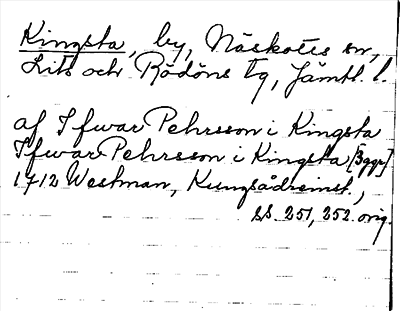 Kingsta, by, Näskotts sn,
Lits och Rödöns tg, Jämtl. l.
af Ifwar Pehrsson i Kingsta
Ifwar Pehrsson i Kingsta [3ggr]
1712 Westman, Kungsådreinst.,
ss. 251, 252. orig.